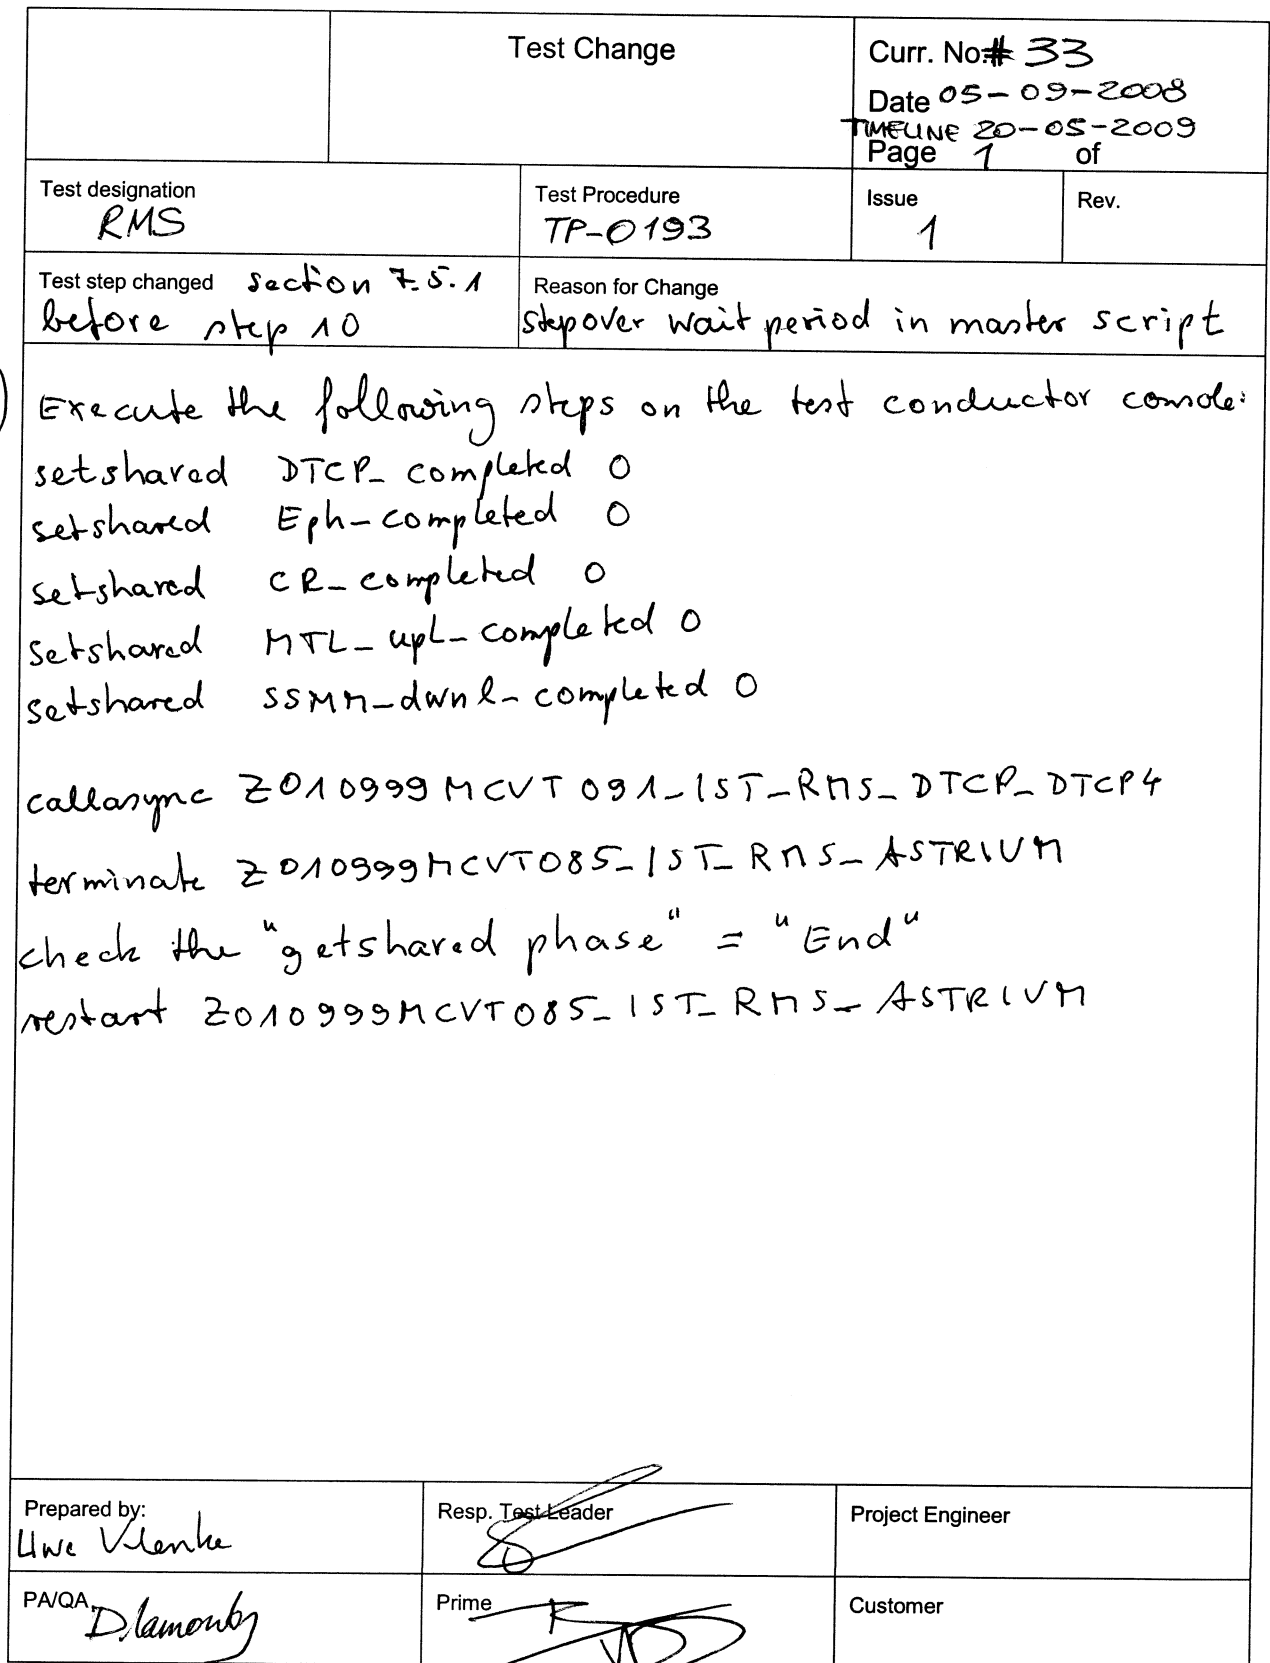 Test Change
Curr. No.# 33
Date 05-09-2008
TIMELINE 20-05-2009
Page 1 of
Test designation
RMS
Test Procedure
TP-0193
Issue
1
Rev.
Test step changed section 7.5.1
before step 10
Reason for Change
stepover wait period in master script
Execute the following steps on the test conductor console:
setshared DTCP_completed 0
setshared Eph_completed 0
setshared CR_completed 0
setshared MTL_upl_completed 0
setshared SSMM_dwnl_completed 0
callasync Z010999MCVT091_IST_RMS_DTCP_DTCP4
terminate Z010999MCVT085_IST_RMS_ASTRIUM
check the "getshared phase" = "End"
restart Z010999MCVT085_IST_RMS_ASTRIUM
Prepared by:
Uwe
Resp. Test Leader
Project Engineer
PA/QA
Prime
Customer